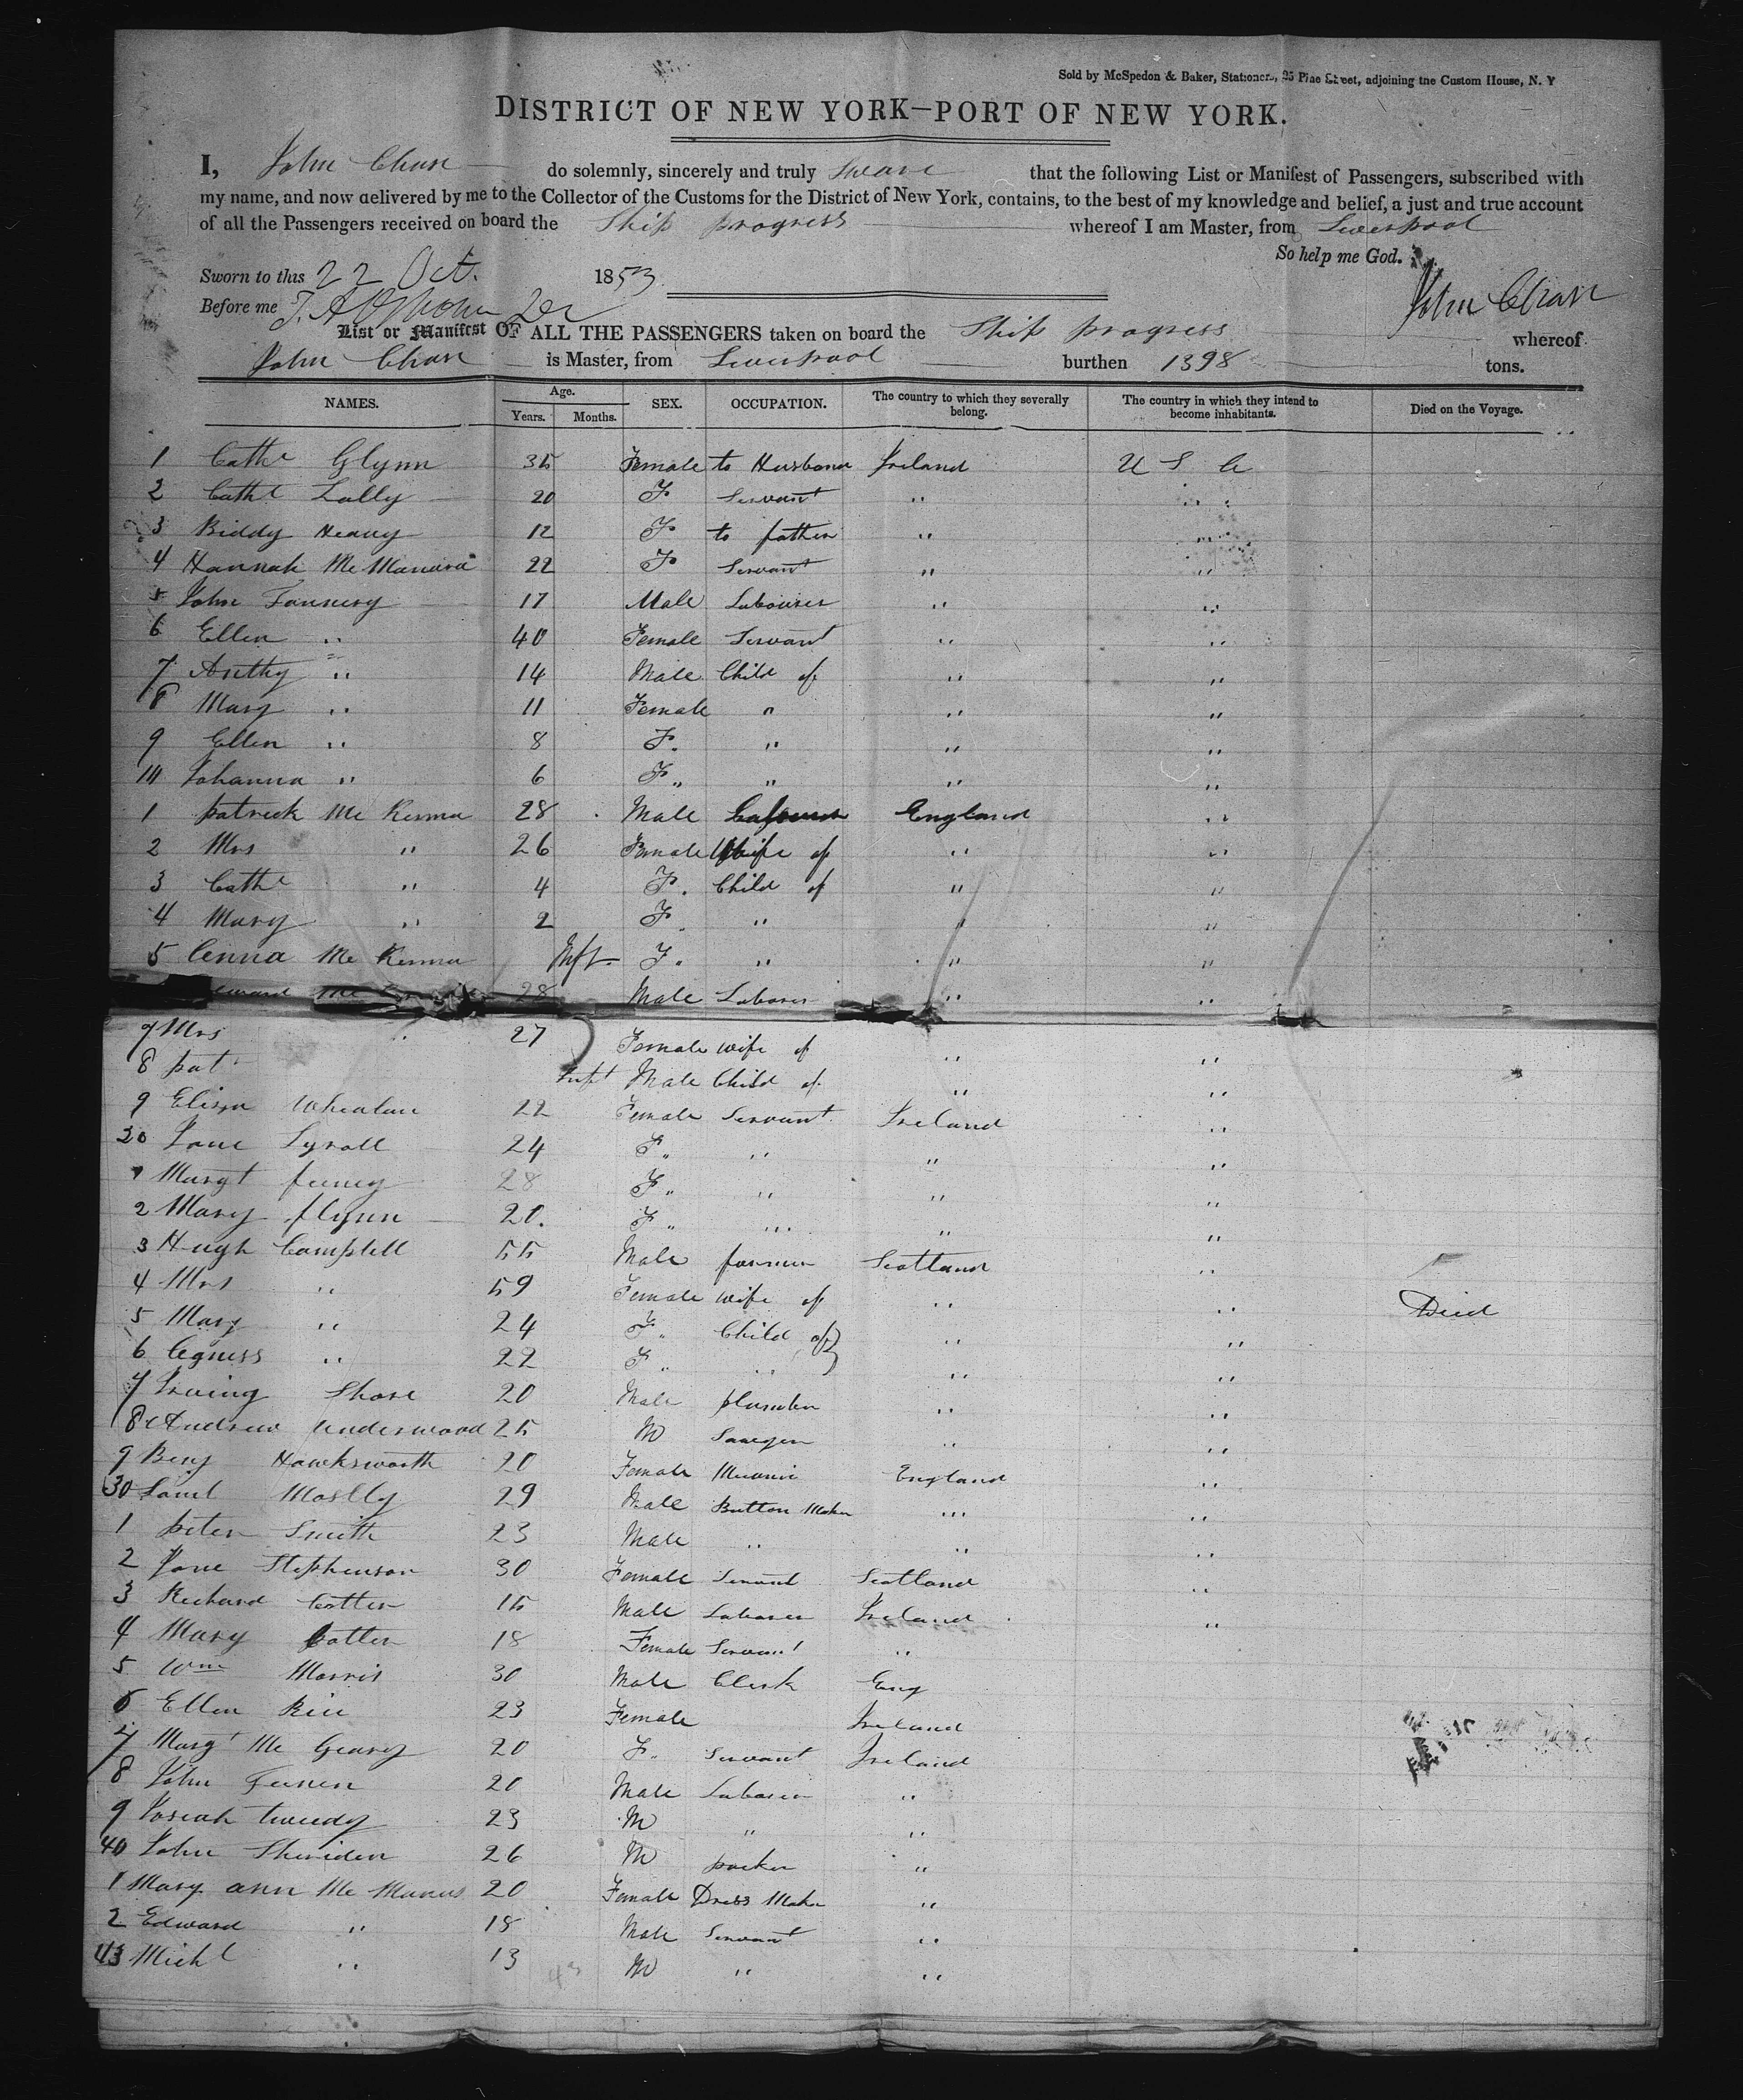 Sold by McSpedon & Baker, Stationers, 25 Pine Street, adjoining the Custom House, N. Y
DISTRICT OF NEW YORK—PORT OF NEW YORK.
I, John Chase do solemnly, sincerely and truly Swear that the following List or Manifest of Passengers, subscribed with
my name, and now delivered by me to the Collector of the Customs for the District of New York, contains, to the best of my knowledge and belief, a just and true account
of all the Passengers received on board the Ship progress whereof I am Master, from Liverpool
So help me God.
Sworn to this 22 Oct. 1853.
John Chase
Before me
List or Manifest OF ALL THE PASSENGERS taken on board the Ship progress whereof
John Chase is Master, from Liverpool burthen 1398 tons.
NAMES. Age. Years. Months. SEX. OCCUPATION. The country to which they severally belong. The country in which they intend to become inhabitants. Died on the Voyage.
1 Cathe Glynn 35 Female to Husband Ireland U S A
2 Cathe Lally 20 F Servant " "
3 Biddy Heavy 12 F to father " "
4 Hannah McManara 22 F Servant " "
5 John Fannery 17 Male Labourer " "
6 Ellen " 40 Female Servant " "
7 Anthy " 14 Male Child of " "
8 Mary " 11 Female " " "
9 Ellen " 8 F. " " "
10 Johanna " 6 F " " " "
1 patrick Mc Kenna 28 Male England "
2 Mrs " 26 Female Wife of " "
3 Cathe " 4 F. Child of " "
4 Mary " 2 F " " "
5 Anna Mc Kenna Inft. F. " " "
28 Male Laborer " "
7 Mrs " 27 Female wife of " "
8 pat Inft Male Child of " "
9 Eliza Whealan 22 Female Servant Ireland "
20 Jane Lyrall 24 F " " " "
1 Margt feeney 28 F " " " "
2 Mary flynn 20. F " " " "
3 Hugh Campbell 55 Male farmer Scotland "
4 Mrs " 59 Female wife of " " Died
5 Mary " 24 F " Child of " "
6 Agness " 22 F " " " "
7 Irving Shore 20 Male plumber " "
8 Andrew Underwood 25 M " "
9 Benj Hawksworth 20 Female England "
30 Saml Moslly 29 Male Button Maker " "
1 peter Smith 23 Male " " "
2 Jane Stephenson 30 Female Servant Scotland "
3 Richard Cotter 15 Male Laborer Ireland "
4 Mary Cotter 18 Female Servant "
5 Wm Morris 30 Male Clerk Eng
6 Ellen Rice 23 Female Ireland
7 Margt Mc Geary 20 F. Servant Ireland
8 John Feenen 20 Male Laborer "
9 Josiah tweedy 23 M " "
40 John Sheriden 26 M packer "
1 Mary ann Mc Manus 20 Female Dress Maker "
2 Edward " 18 Male Servant "
43 Michl " 13 M " "
43